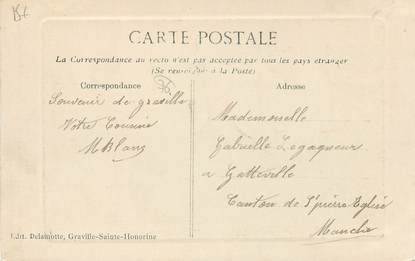 CARTE POSTALE
La Correspondance au recto n'est pas acceptée par tous les pays étranger
(Se renseigner à la Poste)
Correspondance
Adresse
Souvenir de graville
Votre Cousine
MBlanz
Mademoiselle
Gabrielle Legagneur
a Gatteville
Canton de St pierre Eglise
Manche
Edit. Delamotte, Graville-Sainte-Honorine